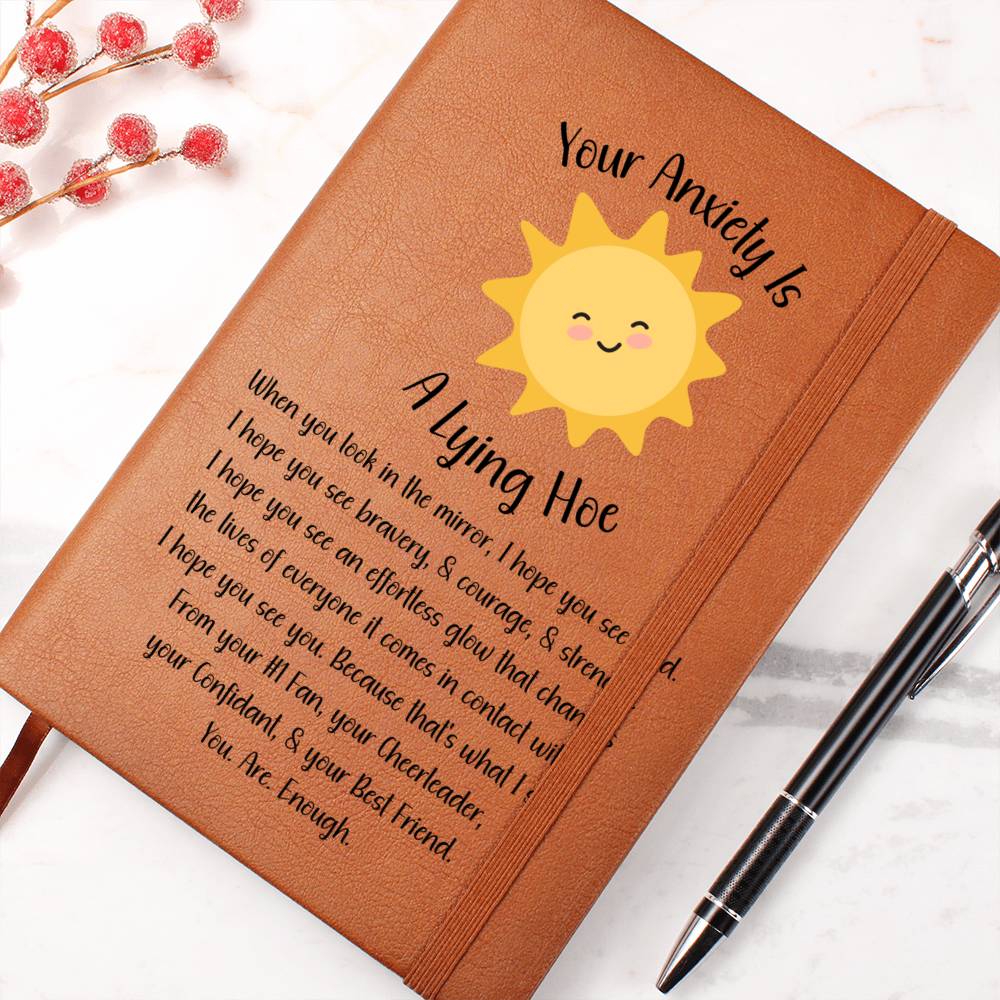 Your Anxiety Is
A Lying Hoe
When you look in the mirror, I hope you see
I hope you see bravery, & courage, &
I hope you see an effortless glow that
the lives of everyone it comes in contact
I hope you see you. Because that's what I
From your #1 Fan, your Cheerleader,
your Confidant, & your Best Friend.
You. Are. Enough.